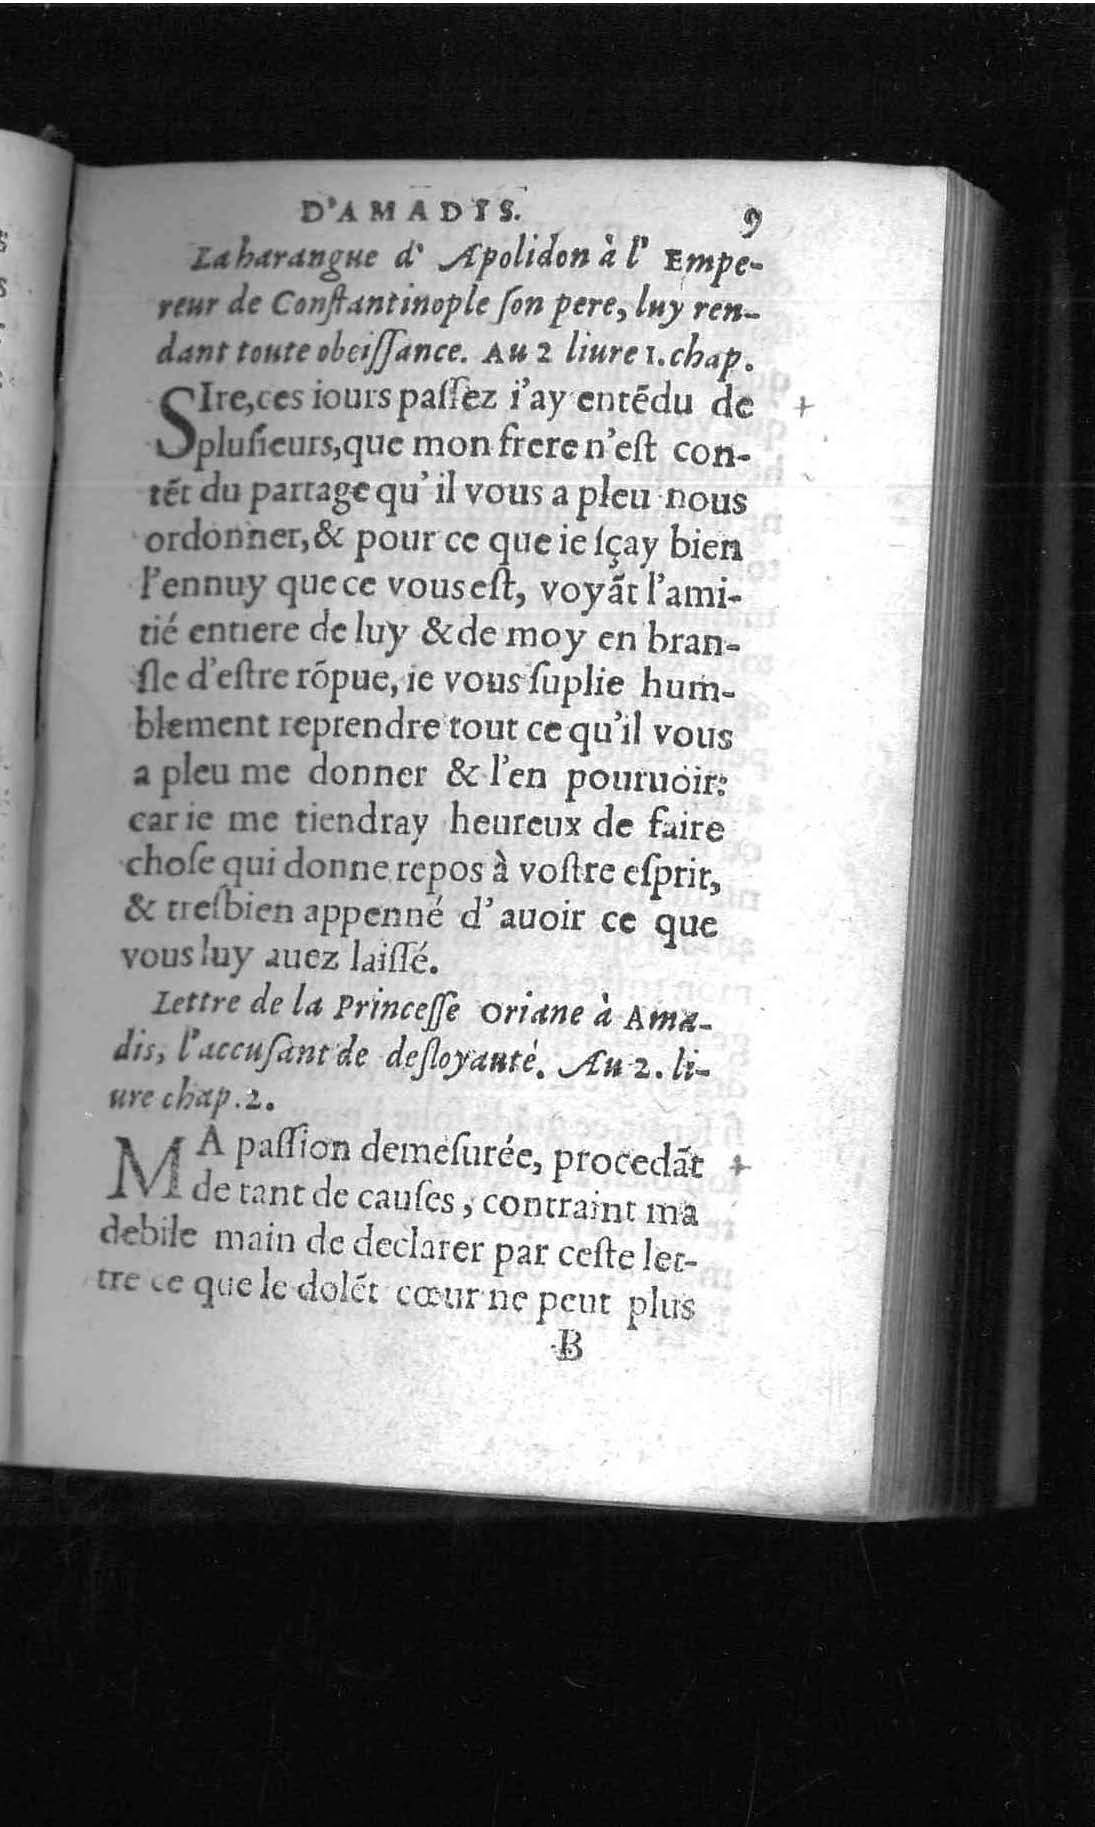 D'AMADIS. 9
La harangue d' Apolidon à l' Empe-
reur de Conſtantinople ſon pere, luy ren-
dant toute obeiſſance. Au 2 liure 1. chap.
SIre, ces iours paſſez i'ay entẽdu de
pluſieurs, que mon frere n'eſt con-
tẽt du partage qu'il vous a pleu nous
ordonner, & pour ce que ie ſçay bien
l'ennuy que ce vous eſt, voyãt l'ami-
tié entiere de luy & de moy en bran-
ſle d'eſtre rõpue, ie vous ſuplie hum-
blement reprendre tout ce qu'il vous
a pleu me donner & l'en pouruoir:
car ie me tiendray heureux de faire
choſe qui donne repos à voſtre eſprit,
& treſbien appenné d'auoir ce que
vous luy auez laiſſé.
Lettre de la Princeſſe Oriane à Ama-
dis, l'accuſant de deſloyauté. Au 2. li-
ure chap. 2.
MA paſſion demeſurée, procedãt
de tant de cauſes, contraint ma
debile main de declarer par ceſte let-
tre ce que le dolẽt cœur ne peut plus
B